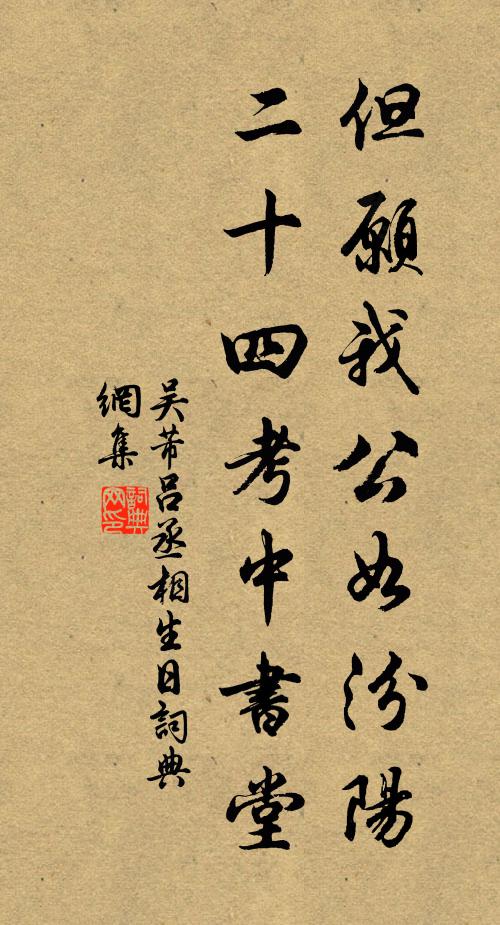 但願我公如汾陽
二十四考中書堂
吴芾吕丞相生日詞典
網集
詞典网印